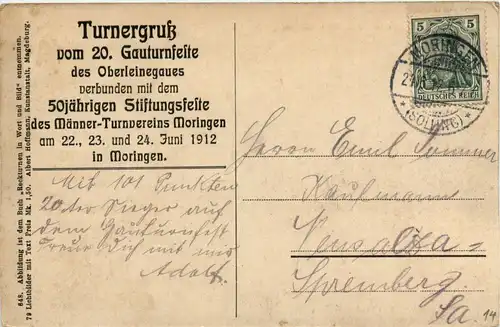 Turnergruß
vom 20. Gauturnfeste
des Oberleinegaues
verbunden mit dem
50jährigen Stiftungsfeste
des Männer-Turnvereins Moringen
am 22., 23. und 24. Juni 1912
in Moringen.
Mit 101 Punkten
20ter Sieger auf
dem Gauturnfest
Freue Dich mit uns
Adolf.
648. Abbildung ist dem Buch „Reckturnen in Wort und Bild" entnommen.
79 Lichtbilder mit Text Preis Mk. 1,50. Albert Hoffmann, Kunstanstalt, Magdeburg.
5 5
DEUTSCHES REICH
MORINGEN
(SOLLING)
Herrn Emil Sommer
Kaufmann
Neusalza-
Spremberg
Sa.
14